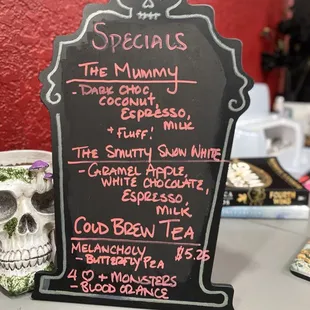 SPECIALS
THE MUMMY
- DARK CHOC,
COCONUT,
ESPRESSO,
MILK
+ FLUFF!
THE SMUTTY SNOW WHITE
- CARAMEL APPLE,
WHITE CHOCOLATE,
ESPRESSO,
MILK
COLD BREW TEA
MELANCHOLY $5.25
- BUTTERFLY PEA
4 ♡ + MONSTERS
- BLOOD ORANGE